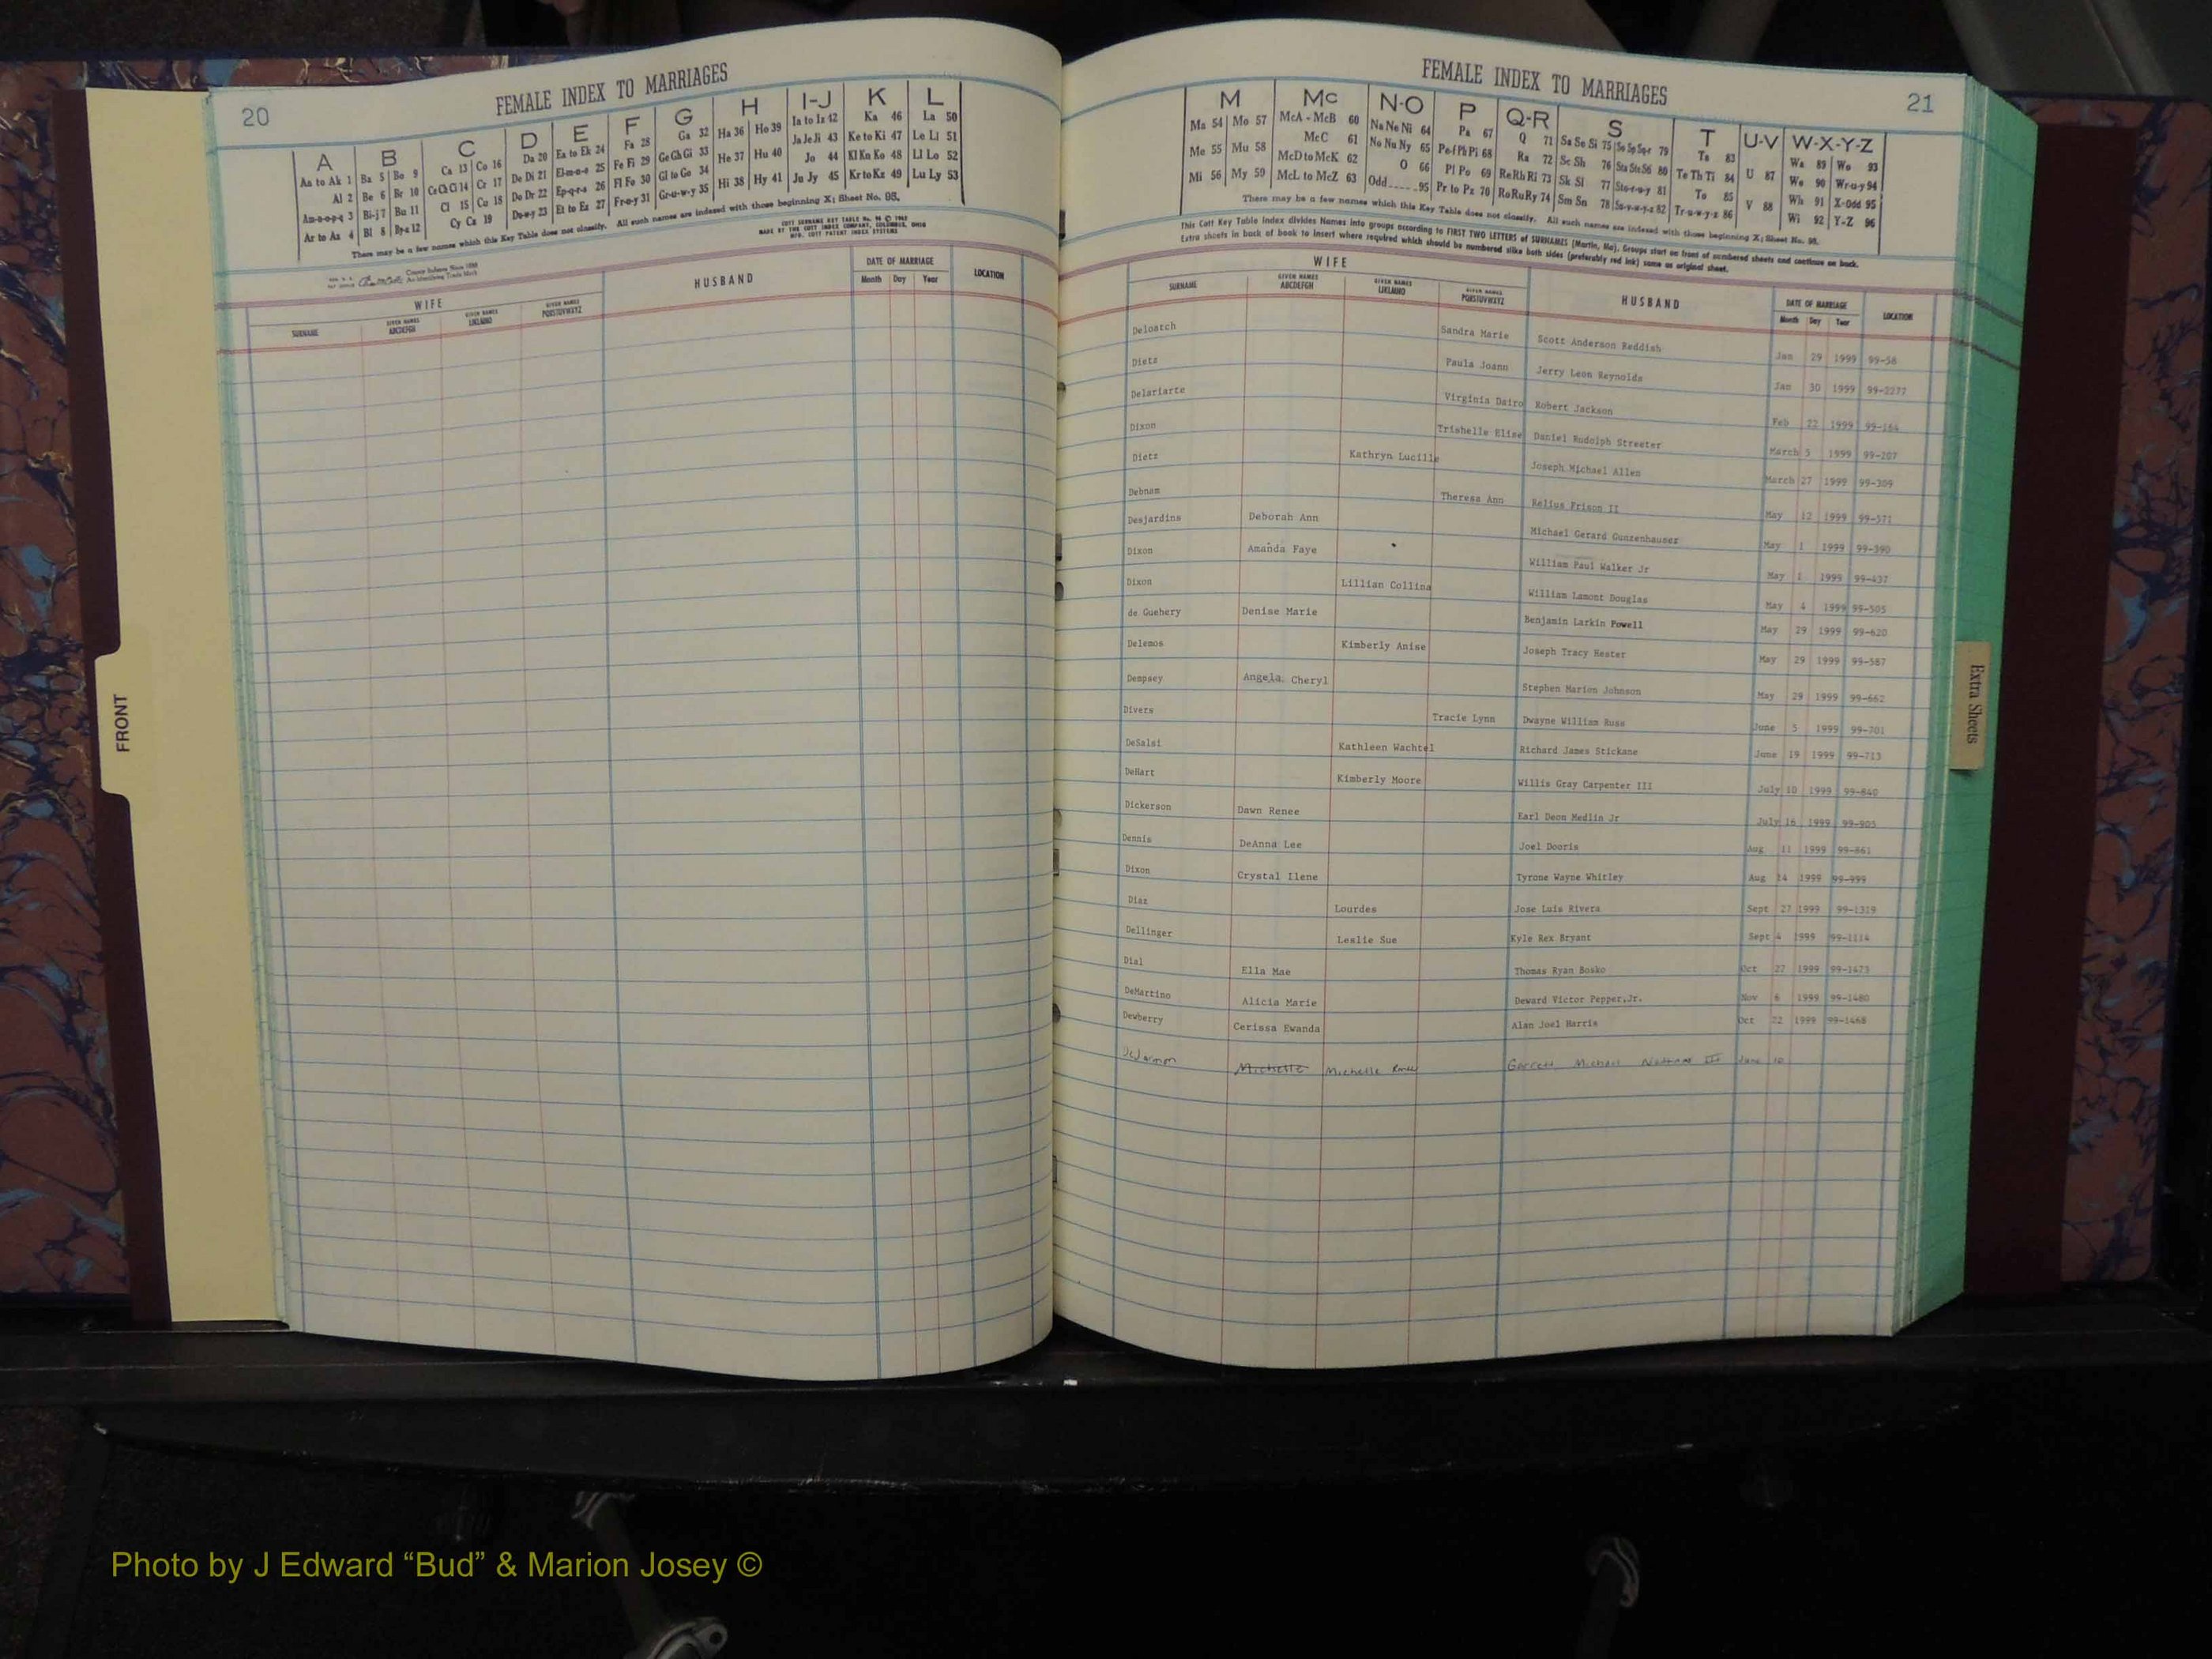 20
FEMALE INDEX TO MARRIAGES
A B C D E F G H I-J K L
Aa to Ak 1 Ba 5 Bo 9 Ca 13 Co 16 Da 20 Ea to Ek 24 Fa 28 Ga 32 Ha 36 Ho 39 Ia to Iz 42 Ka 46 La 50
Al 2 Be 6 Br 10 Ce Ch Ci 14 Cr 17 De Di 21 El-m-n-o 25 Fe Fi 29 Ge Gh Gi 33 He 37 Hu 40 Ja Je Ji 43 Ke to Ki 47 Le Li 51
Am-n-o-p-q 3 Bi-j 7 Bu 11 Cl 15 Cu 18 Do Dr 22 Ep-q-r-s 26 Fl Fo 30 Gl to Go 34 Hi 38 Hy 41 Jo 44 Kl Kn Ko 48 Ll Lo 52
Ar to Az 4 Bl 8 By-z 12 Cy Cz 19 Du-w-y 23 Et to Ez 27 Fr-u-y 31 Gr-u-w-y 35 Ju Jy 45 Kr to Kz 49 Lu Ly 53
There may be a few names which this Key Table does not classify. All such names are indexed with those beginning X; Sheet No. 95.
WIFE HUSBAND DATE OF MARRIAGE LOCATION
SURNAME GIVEN NAMES ABCDEFGH GIVEN NAMES IJKLMNO GIVEN NAMES PQRSTUVWXYZ Month Day Year
FRONT
FEMALE INDEX TO MARRIAGES
21
M Mc N-O P Q-R S T U-V W-X-Y-Z
Ma 54 Mo 57 McA - McB 60 Na Ne Ni 64 Pa 67 Q 71 Sa Se Si 75 So Sp Sq-r 79 Ta 83 U 87 Wa 89 Wo 93
Me 55 Mu 58 McC 61 No Nu Ny 65 Pe-f Ph Pi 68 Ra 72 Sc Sh 76 Sta Ste Sti 80 Te Th Ti 84 V 88 We 90 Wr-u-y 94
Mi 56 My 59 McD to McK 62 O 66 Pl Po 69 Re Rh Ri 73 Sk Sl 77 Sto-r-u-y 81 To 85 Wh 91 X-Odd 95
McL to McZ 63 Odd 95 Pr to Pz 70 Ro Ru Ry 74 Sm Sn 78 Su-v-w-y-z 82 Tr-u-w-y-z 86 Wi 92 Y-Z 96
There may be a few names which this Key Table does not classify. All such names are indexed with those beginning X; Sheet No. 95.
This Cott Key Table Index divides Names into groups according to FIRST TWO LETTERS of SURNAMES (Martin, Ma). Groups start on front of numbered sheets and continue on back.
Extra sheets in back of book to insert where required which should be numbered alike both sides (preferably red ink) same as original sheet.
WIFE HUSBAND DATE OF MARRIAGE LOCATION
SURNAME GIVEN NAMES ABCDEFGH GIVEN NAMES IJKLMNO GIVEN NAMES PQRSTUVWXYZ Month Day Year
Deloatch Sandra Marie Scott Anderson Reddish Jan 29 1999 99-58
Dietz Paula Joann Jerry Leon Reynolds Jan 30 1999 99-2277
Delariarte Virginia Dairo Robert Jackson Feb 22 1999 99-164
Dixon Trishelle Elise Daniel Rudolph Streeter March 5 1999 99-207
Dietz Kathryn Lucille Joseph Michael Allen March 27 1999 99-309
Debnam Theresa Ann Relius Frison II May 12 1999 99-571
Desjardins Deborah Ann Michael Gerard Gunzenhauser May 1 1999 99-390
Dixon Amanda Faye William Paul Walker Jr May 1 1999 99-437
Dixon Lillian Collins William Lamont Douglas May 4 1999 99-505
de Guehery Denise Marie Benjamin Larkin Powell May 29 1999 99-620
Delemos Kimberly Anise Joseph Tracy Hester May 29 1999 99-587
Dempsey Angela Cheryl Stephen Marion Johnson May 29 1999 99-662
Divers Tracie Lynn Dwayne William Russ June 5 1999 99-701
DeSalsi Kathleen Wachtel Richard James Stickane June 19 1999 99-713
DeHart Kimberly Moore Willis Gray Carpenter III July 10 1999 99-840
Dickerson Dawn Renee Earl Deon Medlin Jr July 16 1999 99-905
Dennis DeAnna Lee Joel Dooris Aug 11 1999 99-861
Dixon Crystal Ilene Tyrone Wayne Whitley Aug 14 1999 99-999
Diaz Lourdes Jose Luis Rivera Sept 27 1999 99-1319
Dellinger Leslie Sue Kyle Rex Bryant Sept 4 1999 99-1114
Dial Ella Mae Thomas Ryan Bosko Oct 27 1999 99-1473
DeMartino Alicia Marie Deward Victor Pepper,Jr. Nov 6 1999 99-1480
Dewberry Cerissa Ewanda Alan Joel Harris Oct 22 1999 99-1468
Michelle Michelle Renee Garrett Michael III June
Extra Sheets
Photo by J Edward “Bud” & Marion Josey ©